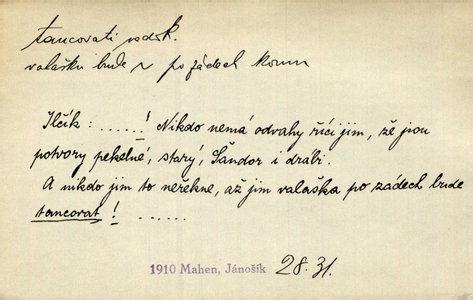 tancovati nedok.
valaška bude ~ po zádech komu
Ilčík : ......! Nikdo nemá odvahy říci jim, že jsou
potvory pekelné, starý, Šándor i drábi.
A nikdo jim to neřekne, až jim valaška po zádech bude
tancovat ! ......
1910 Mahen, Jánošík 28.31.